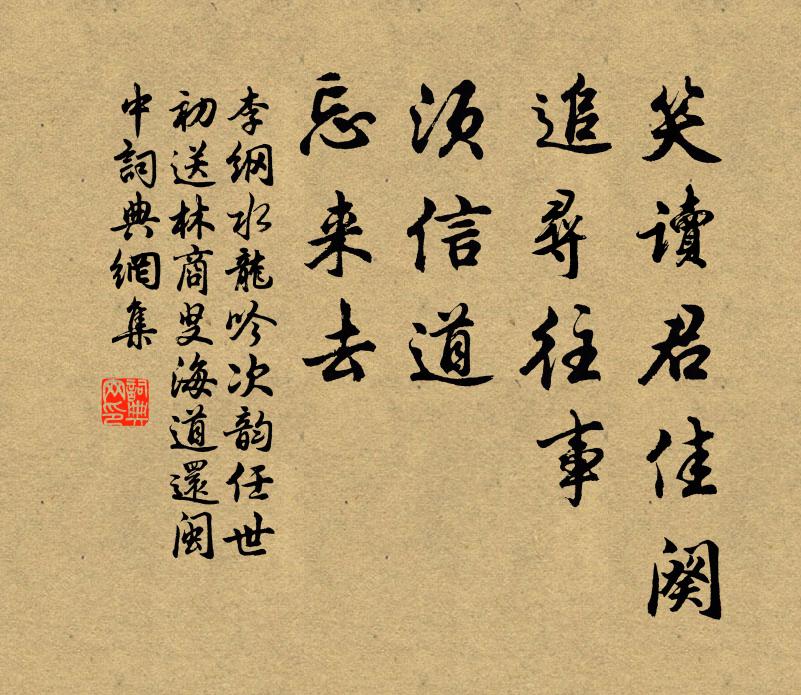 笑讀君佳闋
追尋往事
須信道
忘来去
李綱水龍吟次韵任世
初送林商叟海道還閩
中詞典網集
詞典网印